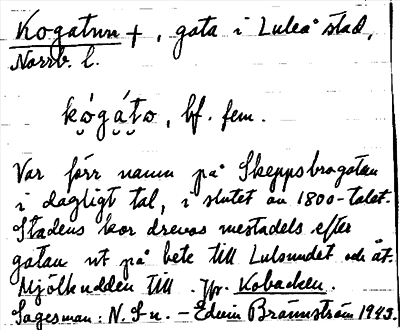 Kogatun +, gata i Luleå stad,
Norrb. l.
kógáto, bf. fem.
Var förr namn på Skeppsbrogatan
i dagligt tal, i slutet av 1800-talet.
Stadens kor drevos mestadels efter
gatan ut på bete till Lulsundet och åt
Mjölkudden till. Jfr. Kobacken.
Sagesman: N. S-n. – Edvin Brännström 1943.